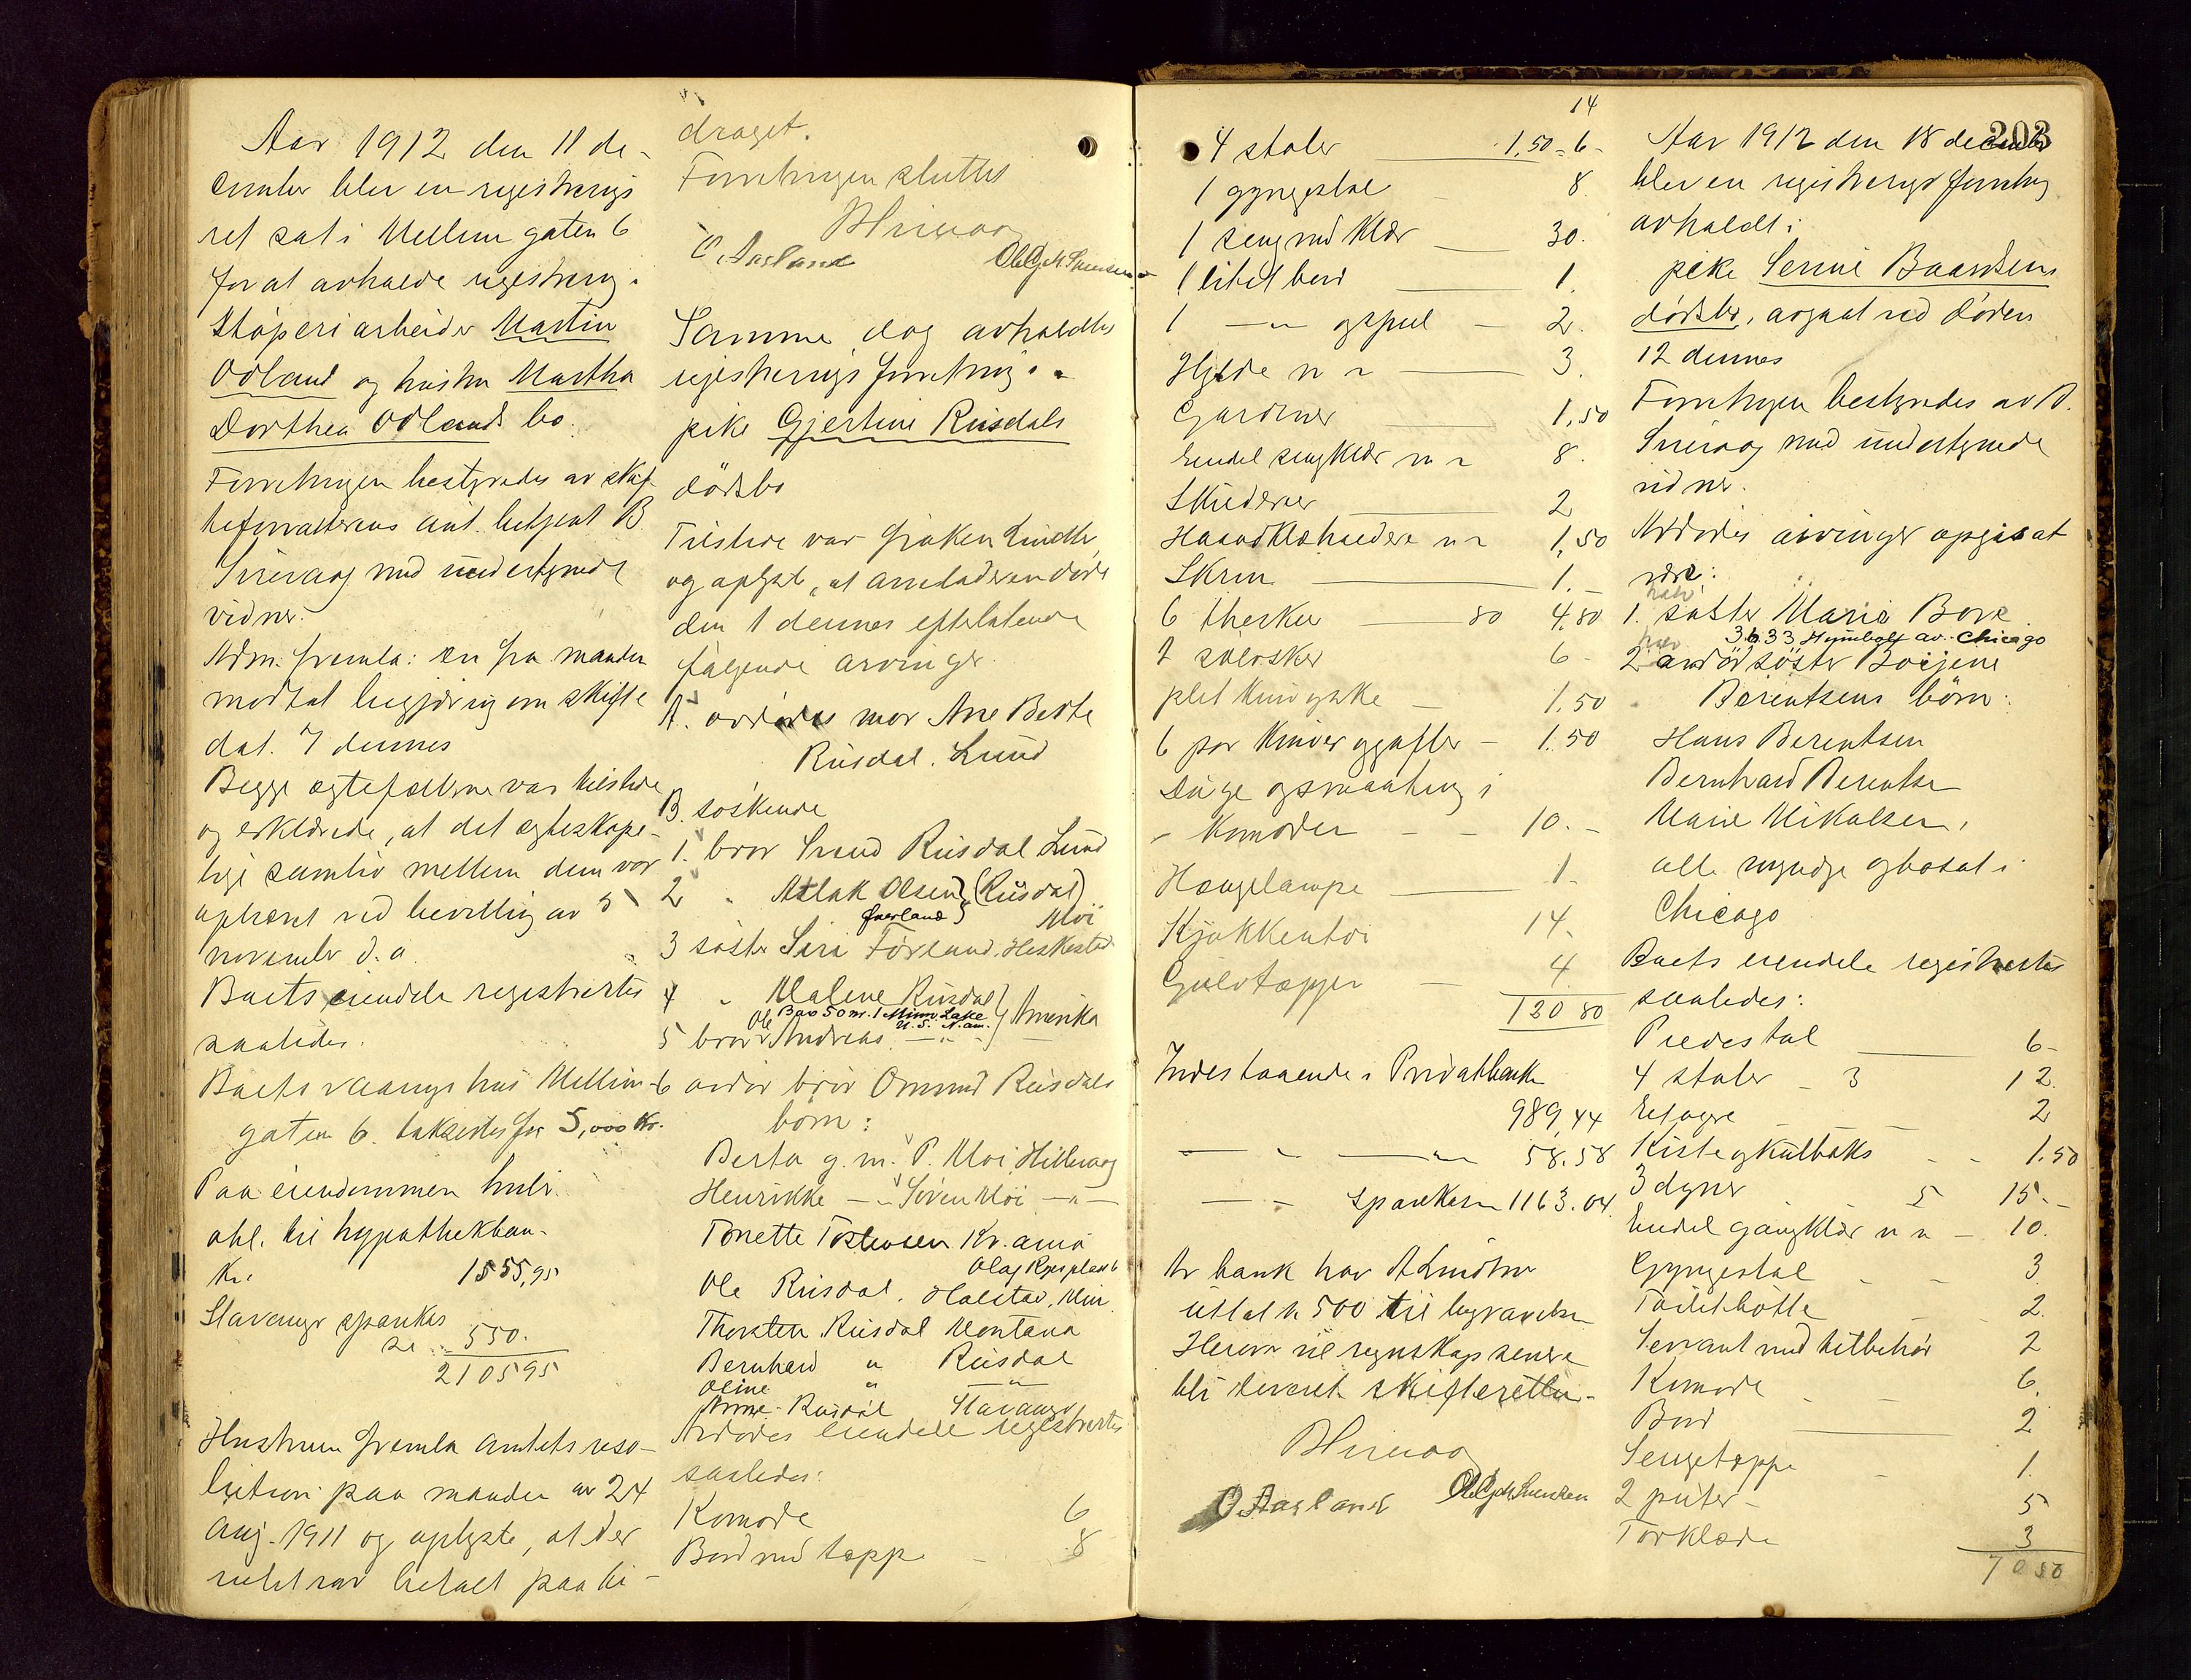 Aar 1912 den 11 de-
cember blev en registrerings
ret sat i Mellem gaten 6
for at avholde registrering i
Støperiarbeider Martin
Odland og hustru Martha
Dorthea Odlands bo.
Forretningen bestyredes av skif-
teforvalterens aut. betjent B.
Sirevaag med undertegnede
vidner.
Adm. fremla: en fra manden
modtat begjæring om skifte
dat. 7 dennes
Begge egtefællerne var tilstede
og erklærede, at det egteskape-
lige samliv mellem dem var
ophævet ved bevilling av 5
november d. a.
Boets eiendele registrertes
saaledes:
Boets vaaningshus Mellem-
gaten 6. takseredes for 5,000 Kr.
Paa eiendommen hviler
obl. til hypothekban-
Kr. 1555,95
Stavanger sparekas
se 550.
210595
Hustruen fremla Amtets reso-
lution paa manden av 24
Aug. 1911 og oplyste, at der
intet var betalt paa bi-
draget.
Forretningen sluttet
BSirevaag
O. Aasland Ole Gj. M. Svendsen
Samme dag avholdtes
registreringsforretning i
pike Gjertine Rusdals
dødsbo
Tilstede var frøken Lindtner
og oplyste, at avdøde døde
den 1 dennes efterlatende
følgende arvinger
A. avdødes mor Ane Berte
Rusdal. Lund
B. søskende
1. bror Trond Rusdal Lund
2 " Atlak Olsen } (Rusdal)
Øverland } Moi
3 søster Siri Førland. Heskestad
4 " Malene Rusdal }
Box 50 nr. 1 Minn Lake } Amerika
U. S. N. am.
5 bror Ole Andreas —"—
6 avdød bror Ommund Rusdals
børn:
Berta g. m. P. Moi, Hillevaag
Henrikke —"— Søren Moi —"—
Tonette Tostensen Kr. ania
Olaf Ryes plass 6
Ole Rusdal. Halstad, Min
Thorsten Rusdal Montana
Bernhard " Rusdal
Oline " —"—
Anne Rusdal Stavanger
Avdødes eiendele registrertes
saaledes:
Komode 6
Bord med tæppe – 8
14
4 stoler 1,50 = 6-
1 gyngestol 8.
1 seng med klær 30.
1 litet bord 1.
1 —"— og speil – 2.
Hylde m m 3.
Gardiner 1,50
Endel sengklær m m 8.
Skilderier 2
Haandklæholdere m m 1,50
Skrin 1.-
6 theskeer 80 4.80
2 sølvskeer 6 -
plet kniv og ske – 1.50
6 par kniver og gafler – 1.50
Duge og smaating i
– Komoden – – 10.-
Hængelampe 1-
Kjøkkentøi 14.
Gulvtæpper 4
120 80
Indestaaende i Privatbanken
989,44
— " — — " 58.58
— — Sparekassen 1163.04
Av bank har A Lindtner
uttat kr 500 til begravelse
Herover vil regnskap senere
bli leveret skifteretten.
BSirevaag
O. Aasland Ole Gj. M. Svendsen
203
Aar 1912 den 18 december
blev en registrerings forretning
avholdt i
pike Serine Baardsens
dødsbo, avgaat ved døden
12 dennes
Forretningen bestyredes av B.
Sirevaag med undertegnede
vidner.
Avdødes arvinger opgis at
være:
halv
1. søster Maria Bore
3633 Humbolt av. Chicago
halv
2 avdød søster Boijene
Berentsens børn:
Hans Berentsen
Bernhard Berentsen
Marie Mikalsen,
alle myndige og bosat i
Chicago
Boets eiendele registrertes
saaledes:
Piedestal 6-
4 stoler – 3 12.
Etagere 2
Kiste og kulboks – – 1.50
3 dyner 5 15.-
Endel gangklær m m – 10.
Gyngestol – – 3
Toiletbøtte 2.
Servant med tilbehør 2
Komode 6.
Bord 2
Sengetæppe 1.
2 puter – 5
Tørklæde 3
70 50